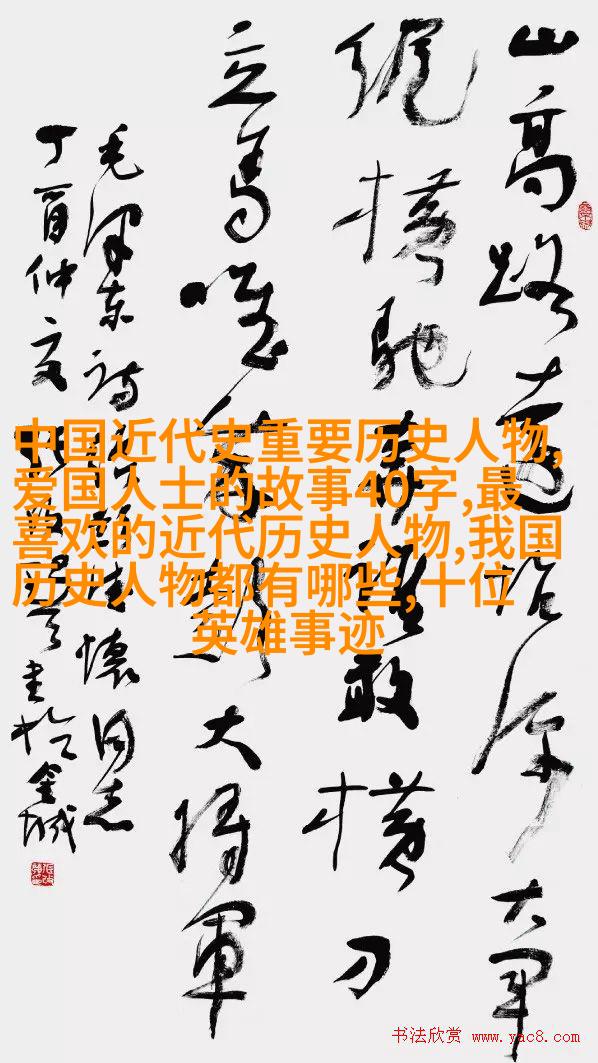 山高路遠坑深大軍
縱橫馳奔誰敢橫刀
立馬唯我彭大將軍
毛澤東詩 懷同志
丁酉仲夏 書於金城
中国近代史重要历史人物,
爱国人士的故事40字,最
喜欢的近代历史人物,我国
历史人物都有哪些,十位
英雄事迹
书法欣赏 www.yac8.com